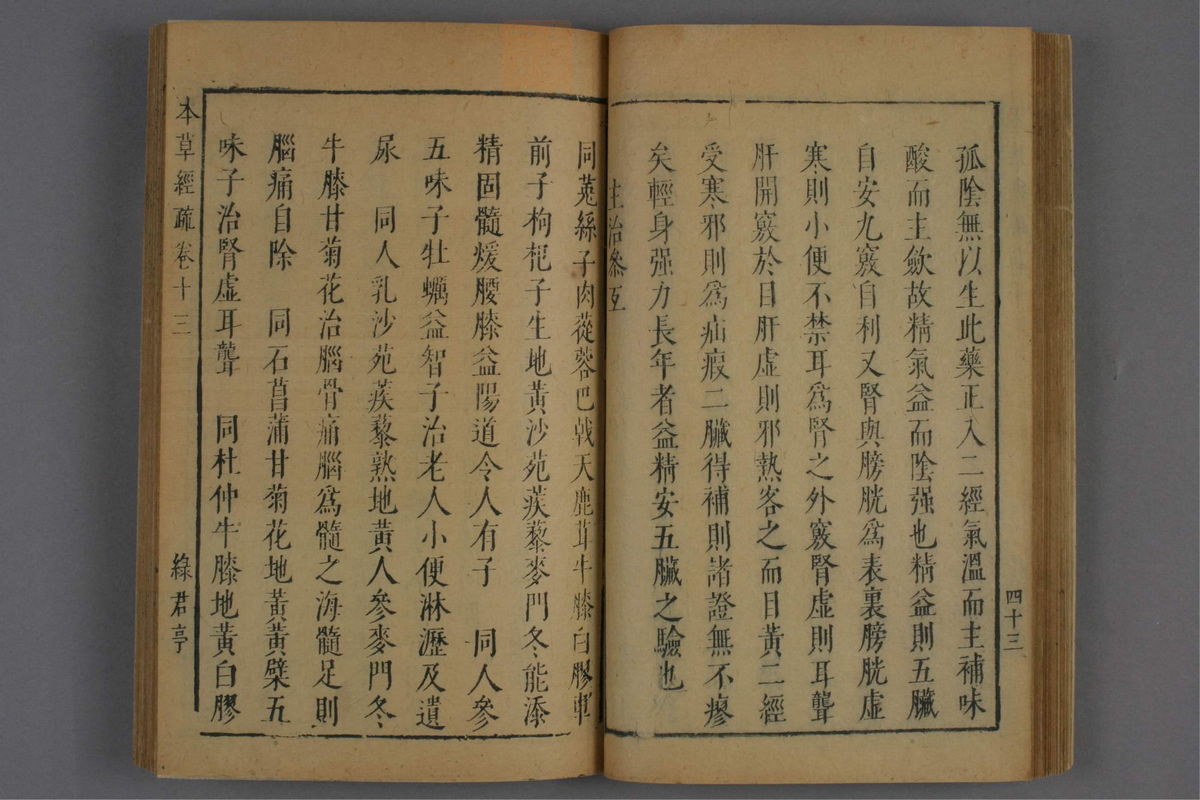 孤陰無以生此藥正入二經氣溫而主補味
酸而主歛故精氣益而陰强也精益則五臟
自安九竅自利又腎與膀胱爲表裏膀胱虛
寒則小便不禁耳爲腎之外竅腎虛則耳聾
肝開竅於目肝虛則邪熱客之而目黃二經
受寒邪則爲疝瘕二臟得補則諸證無不瘳
矣輕身强力長年者益精安五臟之驗也
主治參互
四十三
同菟絲子肉蓯蓉巴戟天鹿茸牛膝白膠車
前子枸杞子生地黃沙苑蒺藜麥門冬能添
精固髓煖腰膝益陽道令人有子 同人參
五味子牡蠣益智子治老人小便淋瀝及遺
尿 同人乳沙苑蒺藜熟地黃人參麥門冬
牛膝甘菊花治腦骨痛腦爲髓之海髓足則
腦痛自除 同石菖蒲甘菊花地黃黃檗五
味子治腎虛耳聾 同杜仲牛膝地黃白膠
本草經疏 卷十三 綠君亭